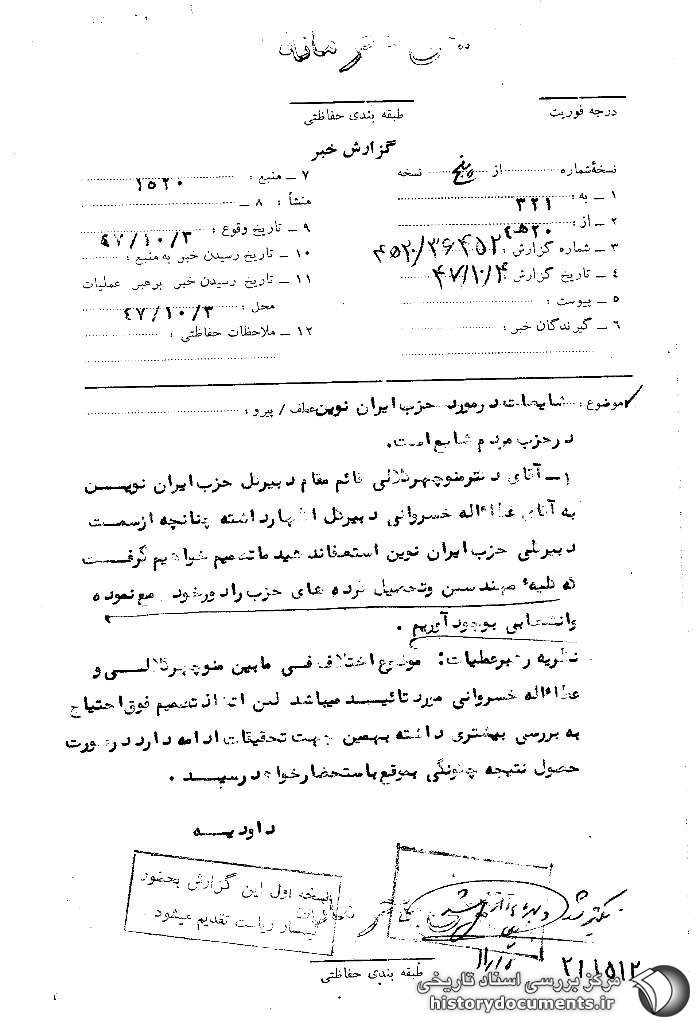 درجه فوریت
طبقه بندی حفاظتی
گزارش خبر
نسخه شماره از پنج نسخه
۱ ـ به : ۳۲۱
۲ ـ از : ۲۰ﻫ۴
۳ ـ شماره گزارش : ۴۵۲۰/۳۶۴۵۲
۴ ـ تاریخ گزارش ۴۷/۱۰/۴
۵ ـ پیوست :
۶ ـ گیرندگان خبر :
۷ ـ منبع : ۱۵۲۰
۸ ـ منشأ :
۹ ـ تاریخ وقوع : ۴۷/۱۰/۳
۱۰ ـ تاریخ رسیدن خبر به منبع :
۱۱ ـ تاریخ رسیدن خبر برهبر عملیات
محل : ۴۷/۱۰/۳
۱۲ ـ ملاحظات حفاظتی :
موضوع : شایعات درمورد حزب ایران نوین عطف / پیرو :
درحزب مردم شایع است.
۱ـ آقای دکترمنوچهرکلالی قائم مقام دبیرکل حزب ایران نویسن
به آقای عطاءاله خسروانی دبیرکل اظهارداشته چنانچه ازسمت
دبیرکلی حزب ایران نوین استعفاندهید ماتصمیم خواهیم گرفت
که کلیه مهندسین وتحصیل کرده های حزب رادورخود جمع نموده
وانشعابی بوجودآوریم .
نظریه رهبرعملیات: موضوع اختلاف فی مابین منوچهرکلالی و
عطاءاله خسروانی مورد تائید میباشد لکن اتخاذ تصمیم فوق احتیاج
به بررسی بیشتری داشته بهمین جهت تحقیقات ادامه دارد درصورت
حصول نتیجه چگونگی بموقع باستحضارخواهدرسید .
داودیه
نسخه اول این گزارش بحضور
ریاست تقدیم میشود
تکثیر شد
۲۱۱۵۱۲
طبقه بندی حفاظتی
مرکز بررسی اسناد تاریخی
historydocuments.ir